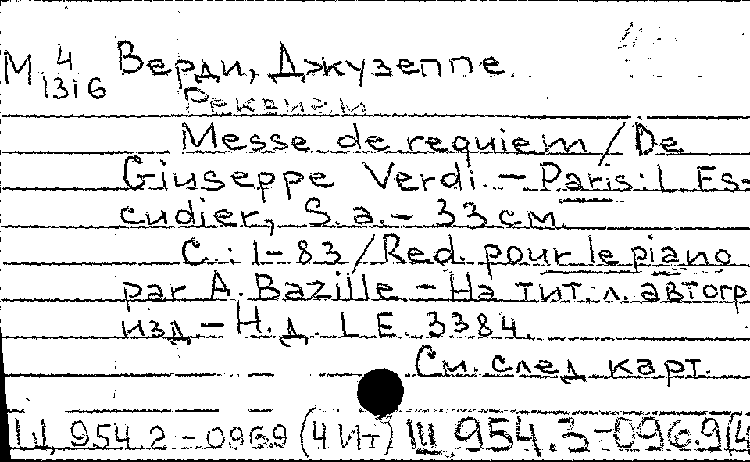 М 4/1316 Верди, Джузеппе.
Реквием
Messe de requiem / De
Giuseppe Verdi. – Paris: L. Es=
cudier, S. a. – 33 см.
С.: 1-83 / Red. pour le piano
par A. Bazille – На тит. л. автогр.
изд – Н. д. L. E. 3384.
См. след. карт.
Щ 954.2-096.9 (4 Ит) Ш 954.3-096.9(4